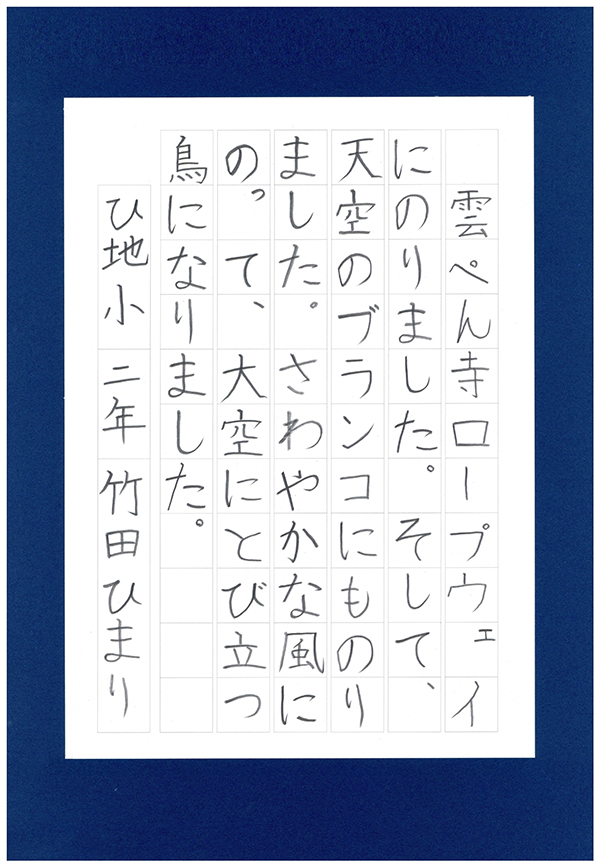 雲ぺん寺ロープウェイ
にのりました。そして、
天空のブランコにものり
ました。さわやかな風に
のって、大空にとび立つ
鳥になりました。
ひ地小 二年 竹田ひまり